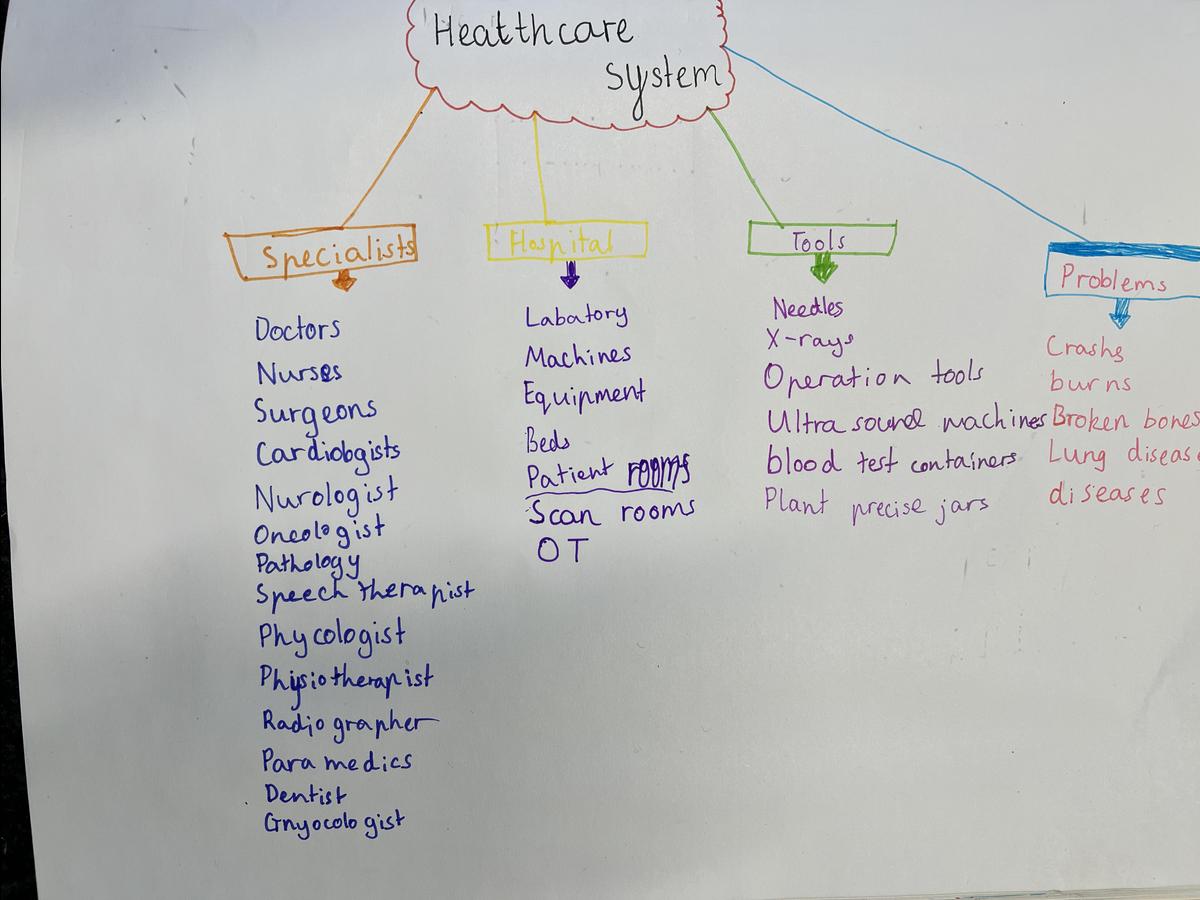 Healthcare
system
Specialists
Doctors
Nurses
Surgeons
Cardiobgists
Nurologist
Oncologist
Pathology
Speech therapist
Phycologist
Physiotherapist
Radiographer
Paramedics
Dentist
Gnyocologist
Hospital
Labatory
Machines
Equipment
Beds
Patient rooms
Scan rooms
OT
Tools
Needles
X-rays
Operation tools
Ultra sound machines
blood test containers
Plant precise jars
Problems
Crashs
burns
Broken bones
Lung disease
diseases